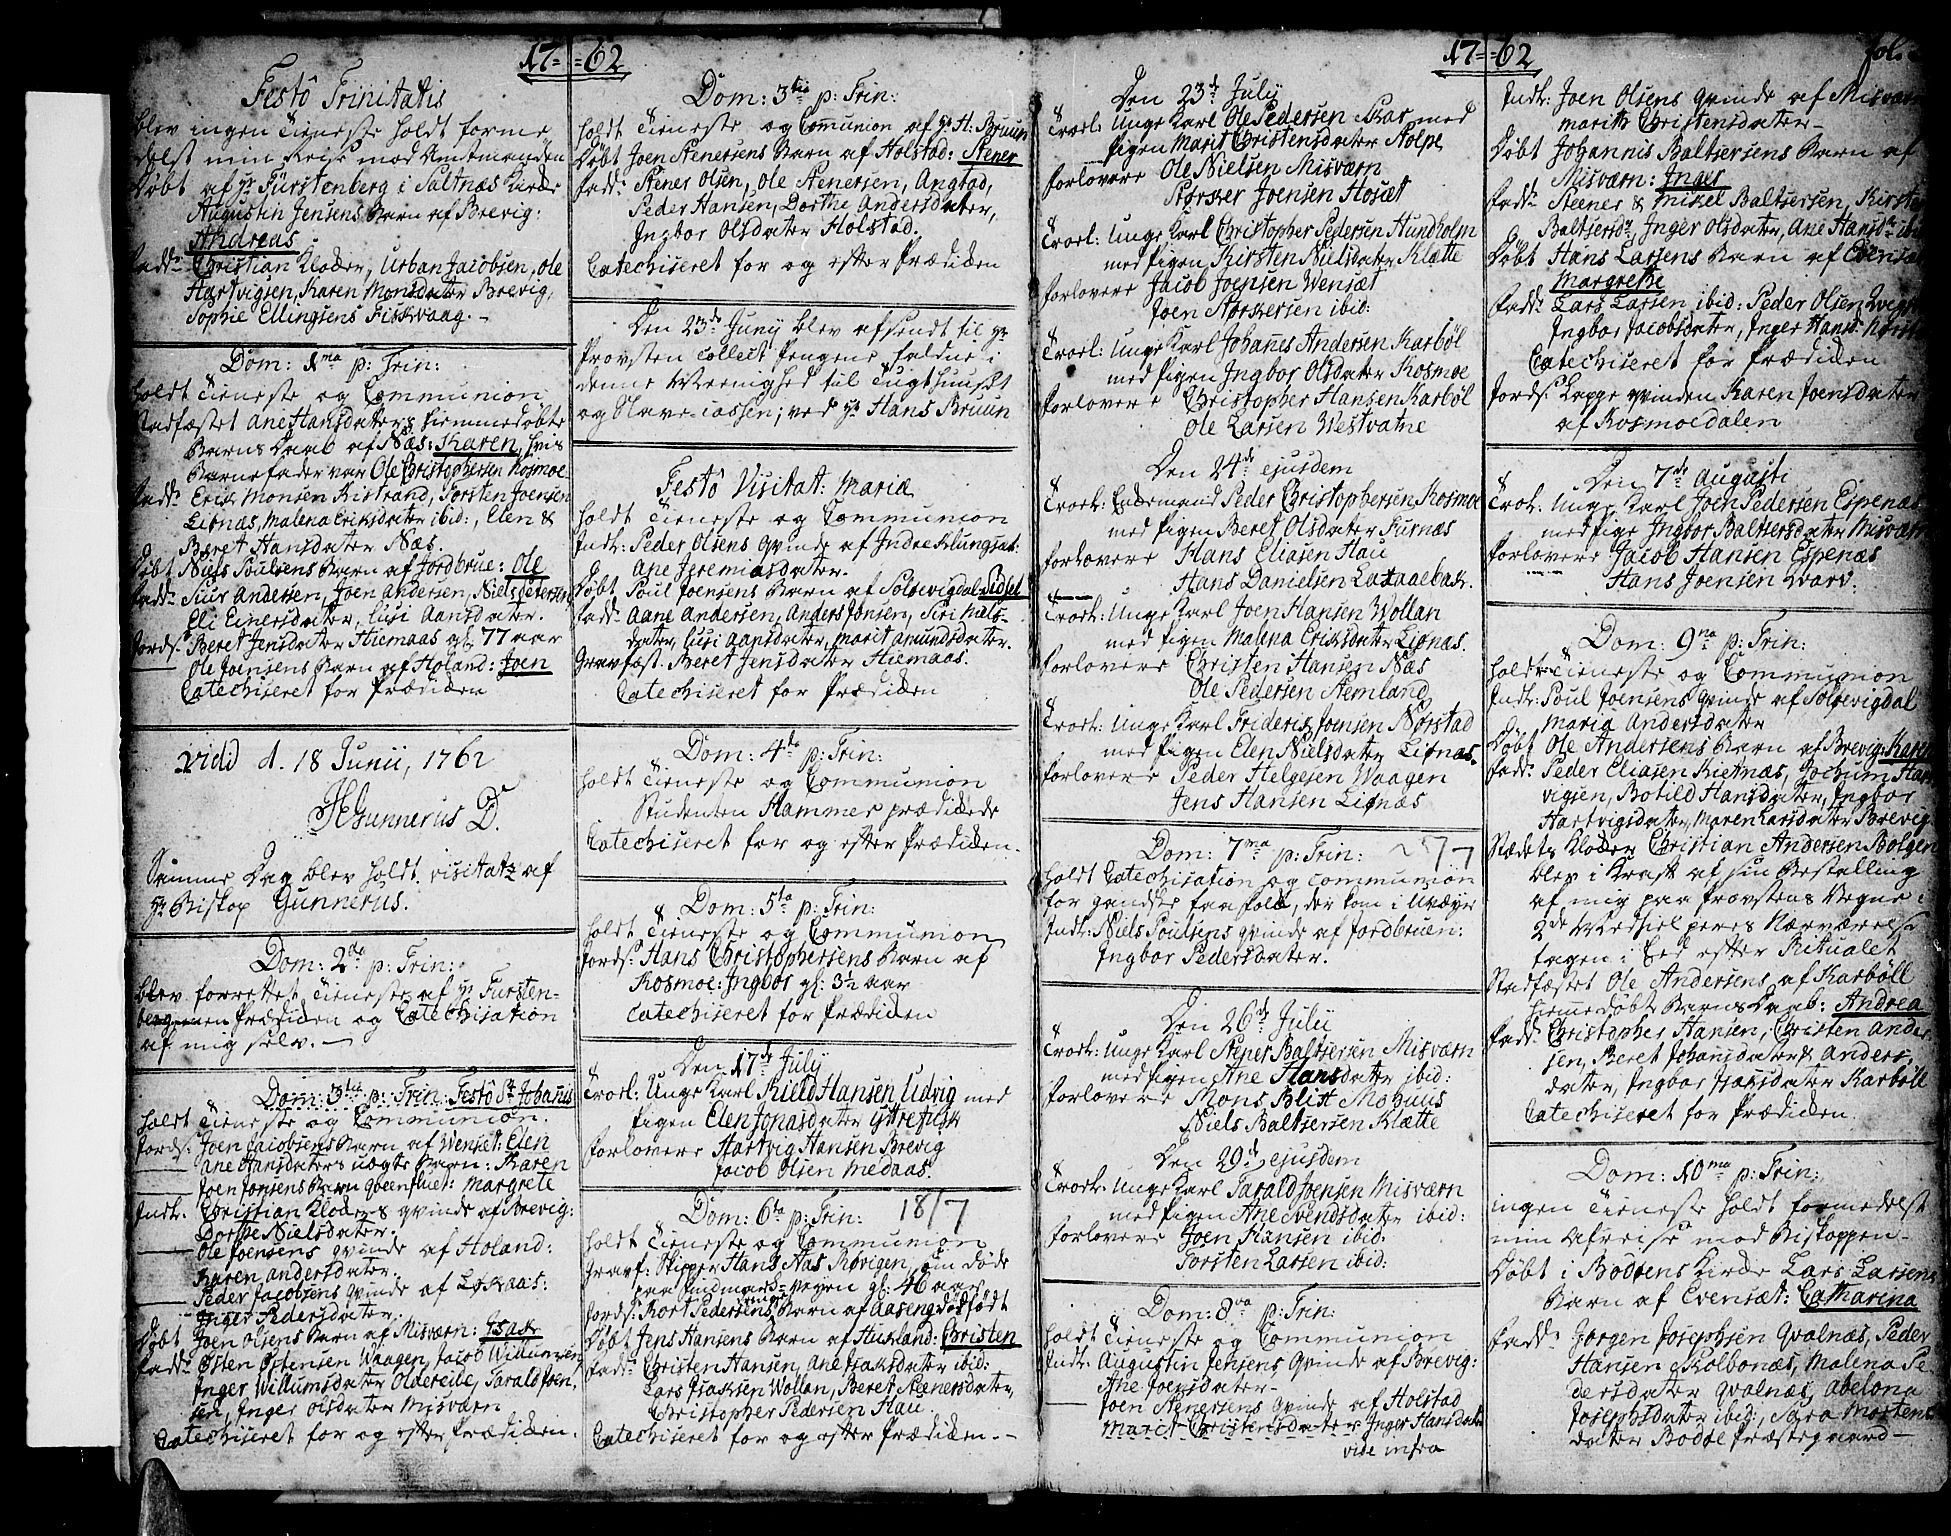 17 = = 62
Festô Trinitatis
blev ingen Tieneste holdt forme
delst min Reise med Amtmanden
Døbt af Hr Fürstenberg i Saltnæs Kirke
Augustin Jensens Barn af Brevig:
Andreas
Fadd: Christian Kloder, Urban Jacobsen, Ole
Hartvigsen, Karen Monsdater Brevig,
Sophie Ellingsens Fiskvaag. -
Dom: 1ma p: Trin:
holdt Tieneste og Communion
Stadfæstet Ane Hansdaters hiemmedøbte
Barns Daab af Næs: Karen, hvis
Barnefader var Ole Christophersen Kosmoe
Fadd: Erich Monsen Kistrand, Torsten Joensen
Liønæs, Malena Eriksdater ibid:, Elen &
Beret Hansdater Næs.
Døbt Niels Poulsens Barn af Jordbrue: Ole
Fadd: Siur Andersen, Joen Andersen, Niels Petersen
Eli Einersdater, Lusi Aansdater.
Jords: Beret Jensdater Hiemaas gl: 77 aar
Ole Joensens Barn af Holand: Joen
Catechiseret for Prædiken
Vidi d. 18 Junii, 1762
JHGunnerus D.
Samme Dag blev holdt visitatz af
Hr Biskop Gunnerus.
Dom: 2da p: Trin:
blev forrettet Tieneste af Hr Fursten-
berg Prædiken og Catechisation
af mig selv. -
Dom: 3tia p: Trin Festô St Johañis
holdt Tieneste og Communion.
Jords: Joen Jacobsens Barn af Wenset: Elen
Ane Hansdaters uægte Barn: Karen
Joen Jonsens Barn Qveenfluet: Margrete
Indt: Christian Kloders qvinde af Brevig:
Dorthe Nielsdater.
Ole Joensens qvinde af Holand:
Karen Andersdater.
Peder Jacobsens qvinde af Løkaas:
Inger Pedersdater
Døbt Joen Olsens Barn af Misværn: Isak
Fadd: Østen Østensen Waagen, Jacob Willumsen
Inger Willumsdater Oldereile, Tarald Joen
sen, Inger Olsdater Misværn
Catechiseret for og efter Prædiken.
Dom: 3tia p: Trin:
holdt Tieneste og Communion af Hr H: Bruun
Døbt Joen Stenersens Barn af Holstad: Stener
Fadd: Stener Olsen, Ole Stenersen, Angstad,
Peder Hansen, Dorthe Andersdater,
Ingbor Olsdater Holstad.
Catechiseret for og efter Prædiken
Den 23de Junij blev afsendt til Hr
Provsten Collect Pengene faldne i
denne Meenighed til Tugthuuset
og Slave-Cassen; ved Hr Hans Bruun
Festô Visitat: Mariæ
holdt Tieneste og Communion
Indt: Peder Olsens qvinde af Indre Klungset:
Ane Jeremiasdater.
Døbt Poul Joensens Barn af Solsevigdal Sidsel
Fadd: Aane Andersen, Anders Jonsen, Siri Niels-
dater, Lusi Aansdater, Marit Amundsdater.
Gravfæst: Beret Jensdater Hiemaas.
Catechiseret for Prædiken
Dom: 4ta p: Trin:
holdt Tieneste og Communion
Studenten Hammer prædikede
Catechiseret for og efter Prædiken.
Dom: 5ta p: Trin:
holdt Tieneste og Communion
Jords: Hans Christophersens Barn af
Kosmoe: Ingbor gl: 3½ aar
Catechiseret for Prædiken
Den 17de July
Troel: Unge Karl Kield Hansen Ludvig med
Pigen Elen Jonasdater Yttrefiisk
Forlovere Hartvig Hansen Brevig
Jacob Olsen Medaas.
Dom: 6ta p: Trin: 18/7
holdt Tieneste og Communion
Gravf: Skipper Hans Aas Røvigen, som døde
paa Findmarks-veyen gl: 46 aar
Jords: Kort Pedersens Barn af Aaseng dødfødt
Døbt Jens Hansens Barn af Huusland: Christen
Fadd: Christen Hansen, Ane Isaksdater ibid:
Lars Isaksen Wollan, Beret Steenersdater,
Christopher Pedersen Hau.
Catechiseret for og efter Prædiken. -
17 = = 62
fol.
Den 23de July
Troel: Unge Karl Ole Pedersen Skar med
Pigen Marit Christensdater Stolpe
Forlovere Ole Nielsen Misværn
Størker Joensen Hosæt
Troel: Unge Karl Christopher Pedersen Hundholm
med Pigen Kirsten Nielsdater Klætte
Forlovere Jacob Joensen Wensæt
Joen Størkersen ibid:
Troel: Unge Karl Johañes Andersen Karbøl
med Pigen Ingbor Olsdater Kosmoe
Forlovere Christopher Hansen Karbøl
Ole Larsen Westvatne
Den 24de ejusdem
Troel: Enkemand Peder Christophersen Kosmoe
med Pigen Beret Olsdater Furnæs
Forlovere Hans Eliasen Hau
Hans Danielsen Laxaaebak.
Troel: Unge Karl Joen Hansen Wollan
med Pigen Malena Eriksdater Liønas.
Forlovere Christen Hansen Næs
Ole Pedersen Stemland
Troel: Unge Karl Friderik Joensen Norstad
med Pigen Elen Nielsdater Liønas.
Forlovere Peder Helgesen Waagen
Jens Hansen Liønæs
Dom: 7ma p: Trin: 25/7
holdt Catechisation og Communion
for gandske faa Folk, der kom i Uveyr
Indt: Niels Poulsens qvinde af Jordbruen:
Ingbor Pedersdater.
Den 26de Julii
Troel: Unge Karl Stener Baltsersen Misværn
med Pigen Ane Hansdater ibid:
Forlovere Mons Blix Mohuus
Niels Baltsersen Klætte
Den 29de ejusdem
Troel: Unge Karl Tarald Joensen Misværn
med Pigen Ane Svendsdater ibid:
Forlovere Joen Hansen ibid:
Torsten Larsen ibid:
Dom: 8va p: Trin:
holdt Tieneste og Communion
Indt: Augustin Jensens Qvinde af Brevig:
Ane Joensdater -
Joen Stenersens qvinde af Holstad
Marit Christensdater Inger Hansdater
vide infra
Indt: Joen Olsens qvinde af Misværn
Marith Christensdater -
Døbt Johannis Baltsersens Barn af
Misværn: Inger
Fadd: Steener & Mikel Baltsersen, Kirsten
Baltsersdr, Inger Olsdater, Ane Hansdr ibid
Døbt Hans Larsens Barn af Evensæt
Margrethe
Fadd: Lars Larsen ibid: Peder Olsen
Ingbor Jacobsdater, Inger Hansd:
Catechiseret for Prædiken
Jords: Lappe qvinden Karen Joensdater
af Kosmoedalen
Den 7de Augusti
Troel: Unge Karl Joen Pedersen Espenæs
med Pige Ingbor Baltsersdater Misværn
Forlovere Jacob Hansen Espenæs
Hans Joensen Kvarv.
Dom: 9na p: Trin:
holdt Tieneste og Communion
Indt: Poul Joensens qvinde af Solsevigdal
Maria Andersdater
Døbt Ole Andersens Barn af Brevig: Karen
Fadd: Peder Eliasen Kietnæs, Jochum Hart
vigsen, Botild Hansdater, Ingbor
Hartvigsdater, Maren Larsdater Brevig.
Stædets Kloder Christian Andersen Bolgen
blev i Kraft af sin Bestalling
af mig paa Provstens Vegne i
2de Medhielperes Nærværelse
tagen i Eed efter Ritualet
Stadfæstet Ole Andersens af Karbøll
hiemmedøbt Barns Daab: Andrea
Fadd: Christopher Hansen, Christen Ander
sen, Beret Johansdater & Anders
dater, Ingbor Isaksdater Karbøll
Catechiseret for Prædiken.
Dom: 10ma p: Trin:
ingen Tieneste holdt formedelst
min Afreise med Biskoppen -
Døbt i Bodøens Kirke Lars Larsens
Barn af Evensæt: Catharina
Fadd: Jørgen Josephsen Qvalnæs, Peder
Hansen Skolbonæs, Malena Pe
dersdater Qvalnæs, Abelona
Josephsdater ibid:, Sara Mortens
dater Bodøe Præstegaard -